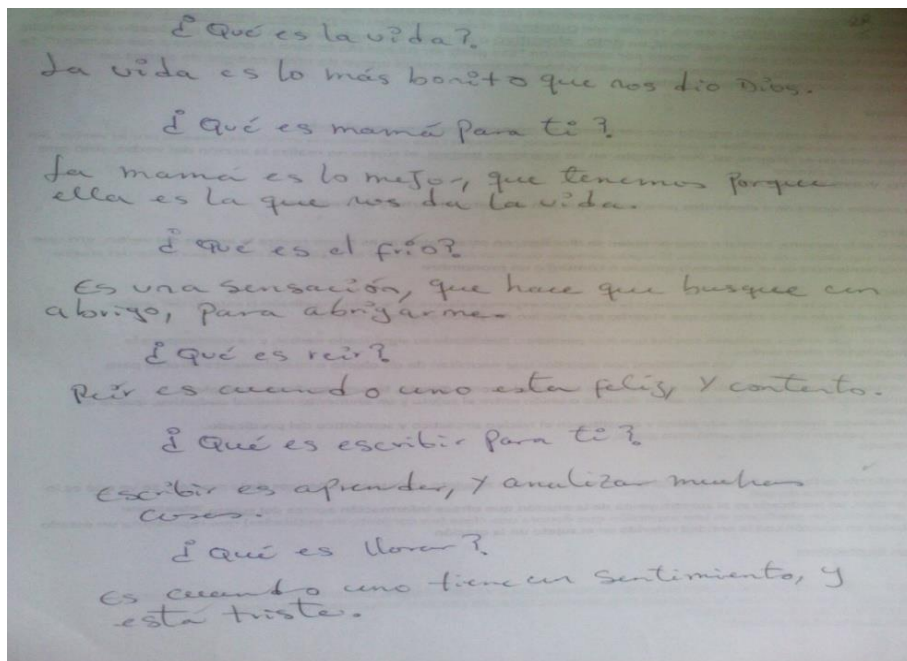 ¿Qué es la vida?.
La vida es lo más bonito que nos dio Dios.
¿Qué es mamá para ti?
La mamá es lo mejor, que tenemos porque
ella es la que nos da la vida.
¿Qué es el frío?
Es una sensación, que hace que busque un
abrigo, para abrigarme.
¿Qué es reir?
Reír es cuando uno esta feliz, y contento.
¿Qué es escribir para ti?
Escribir es aprender, y analizar muchas
cosas.
¿Qué es llorar?
es cuando uno tiene un sentimiento, y
está triste.